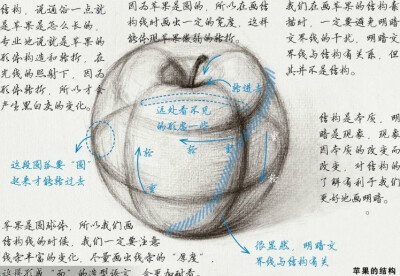 结构，说通俗一点就
是苹果是怎么长的，
专业地说就是苹果的
形体构造和转折，在
光线的照射下，因为
形体转折，所以才会
产生黑白灰的变化。
因为苹果是圆的，所以在画结
构线时画出一定的宽度，这样
能体现苹果微弱的转折。
我们在画苹果的结构素
描时，一定要避免明暗交
界线的干扰，明暗交
界线与结构有关系，但
其并不是结构。
转进去
远处看不见
的形虚一些
转
转
转
实
实
这段圆弧要“圆”
起来才能转过去
结构是本质，明
暗是现象，现象
因本质的改变而
改变，对结构的
了解有利于我们
更好地画明暗。
苹果是圆球体，所以我们画
结构线的时候，我们一定要注意
线条丰富的变化，尽量画出线条的“厚度”，
很显然，明暗交
界线与结构有关
苹果的结构